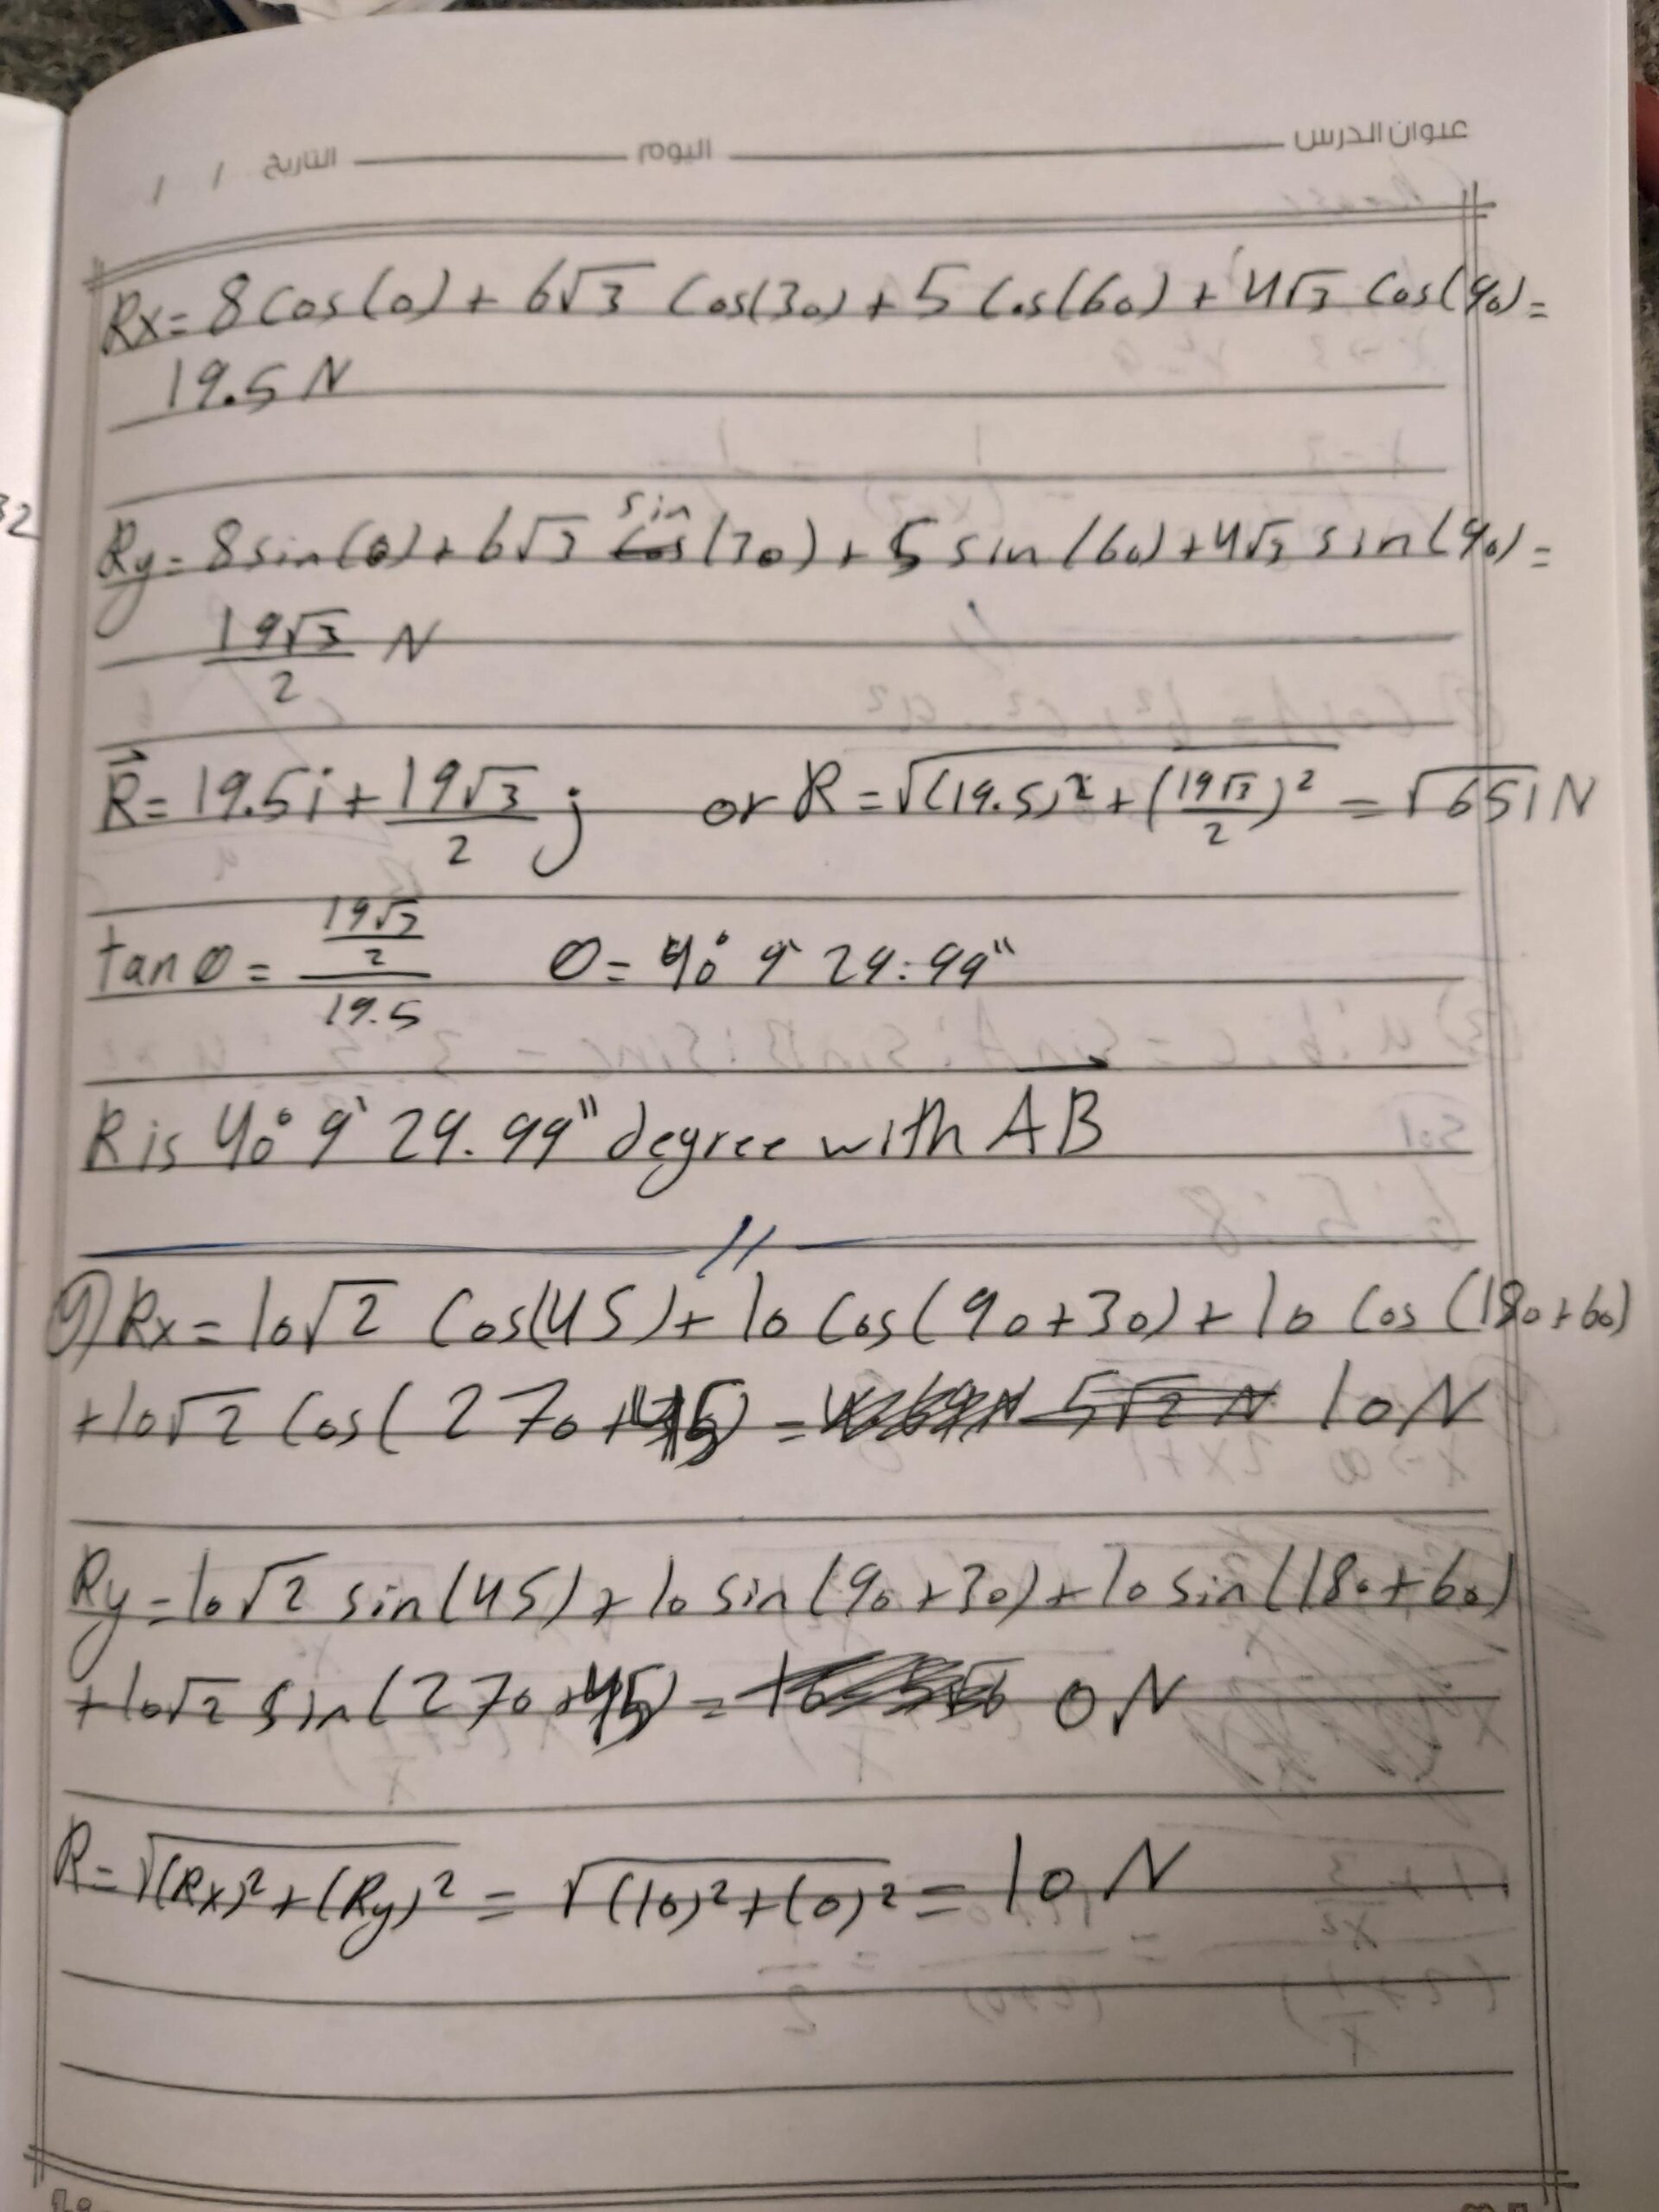 عنوان الدرس اليوم التاريخ / /
Rx = 8 Cos(0) + 6√3 Cos(30) + 5 Cos(60) + 4√3 Cos(90) =
19.5 N
Ry = 8 sin(0) + 6√3 sin (30) + 5 sin (60) + 4√3 sin(90) =
19√3/2 N
R⃗ = 19.5i + 19√3/2 j or R = √((19.5)² + (19√3/2)²) = √651 N
tan θ = (19√3/2)/19.5 θ = 40° 9` 24.99"
R is 40° 9` 24.99" degree with AB⃗
//
9) Rx = 10√2 Cos(45) + 10 Cos(90+30) + 10 Cos (180+60)
+10√2 Cos(270+45) = 10 N
Ry = 10√2 sin(45) + 10 sin(90+30) + 10 sin(180+60)
+10√2 sin(270+45) = 0 N
R = √((Rx)² + (Ry)²) = √((10)² + (0)²) = 10 N